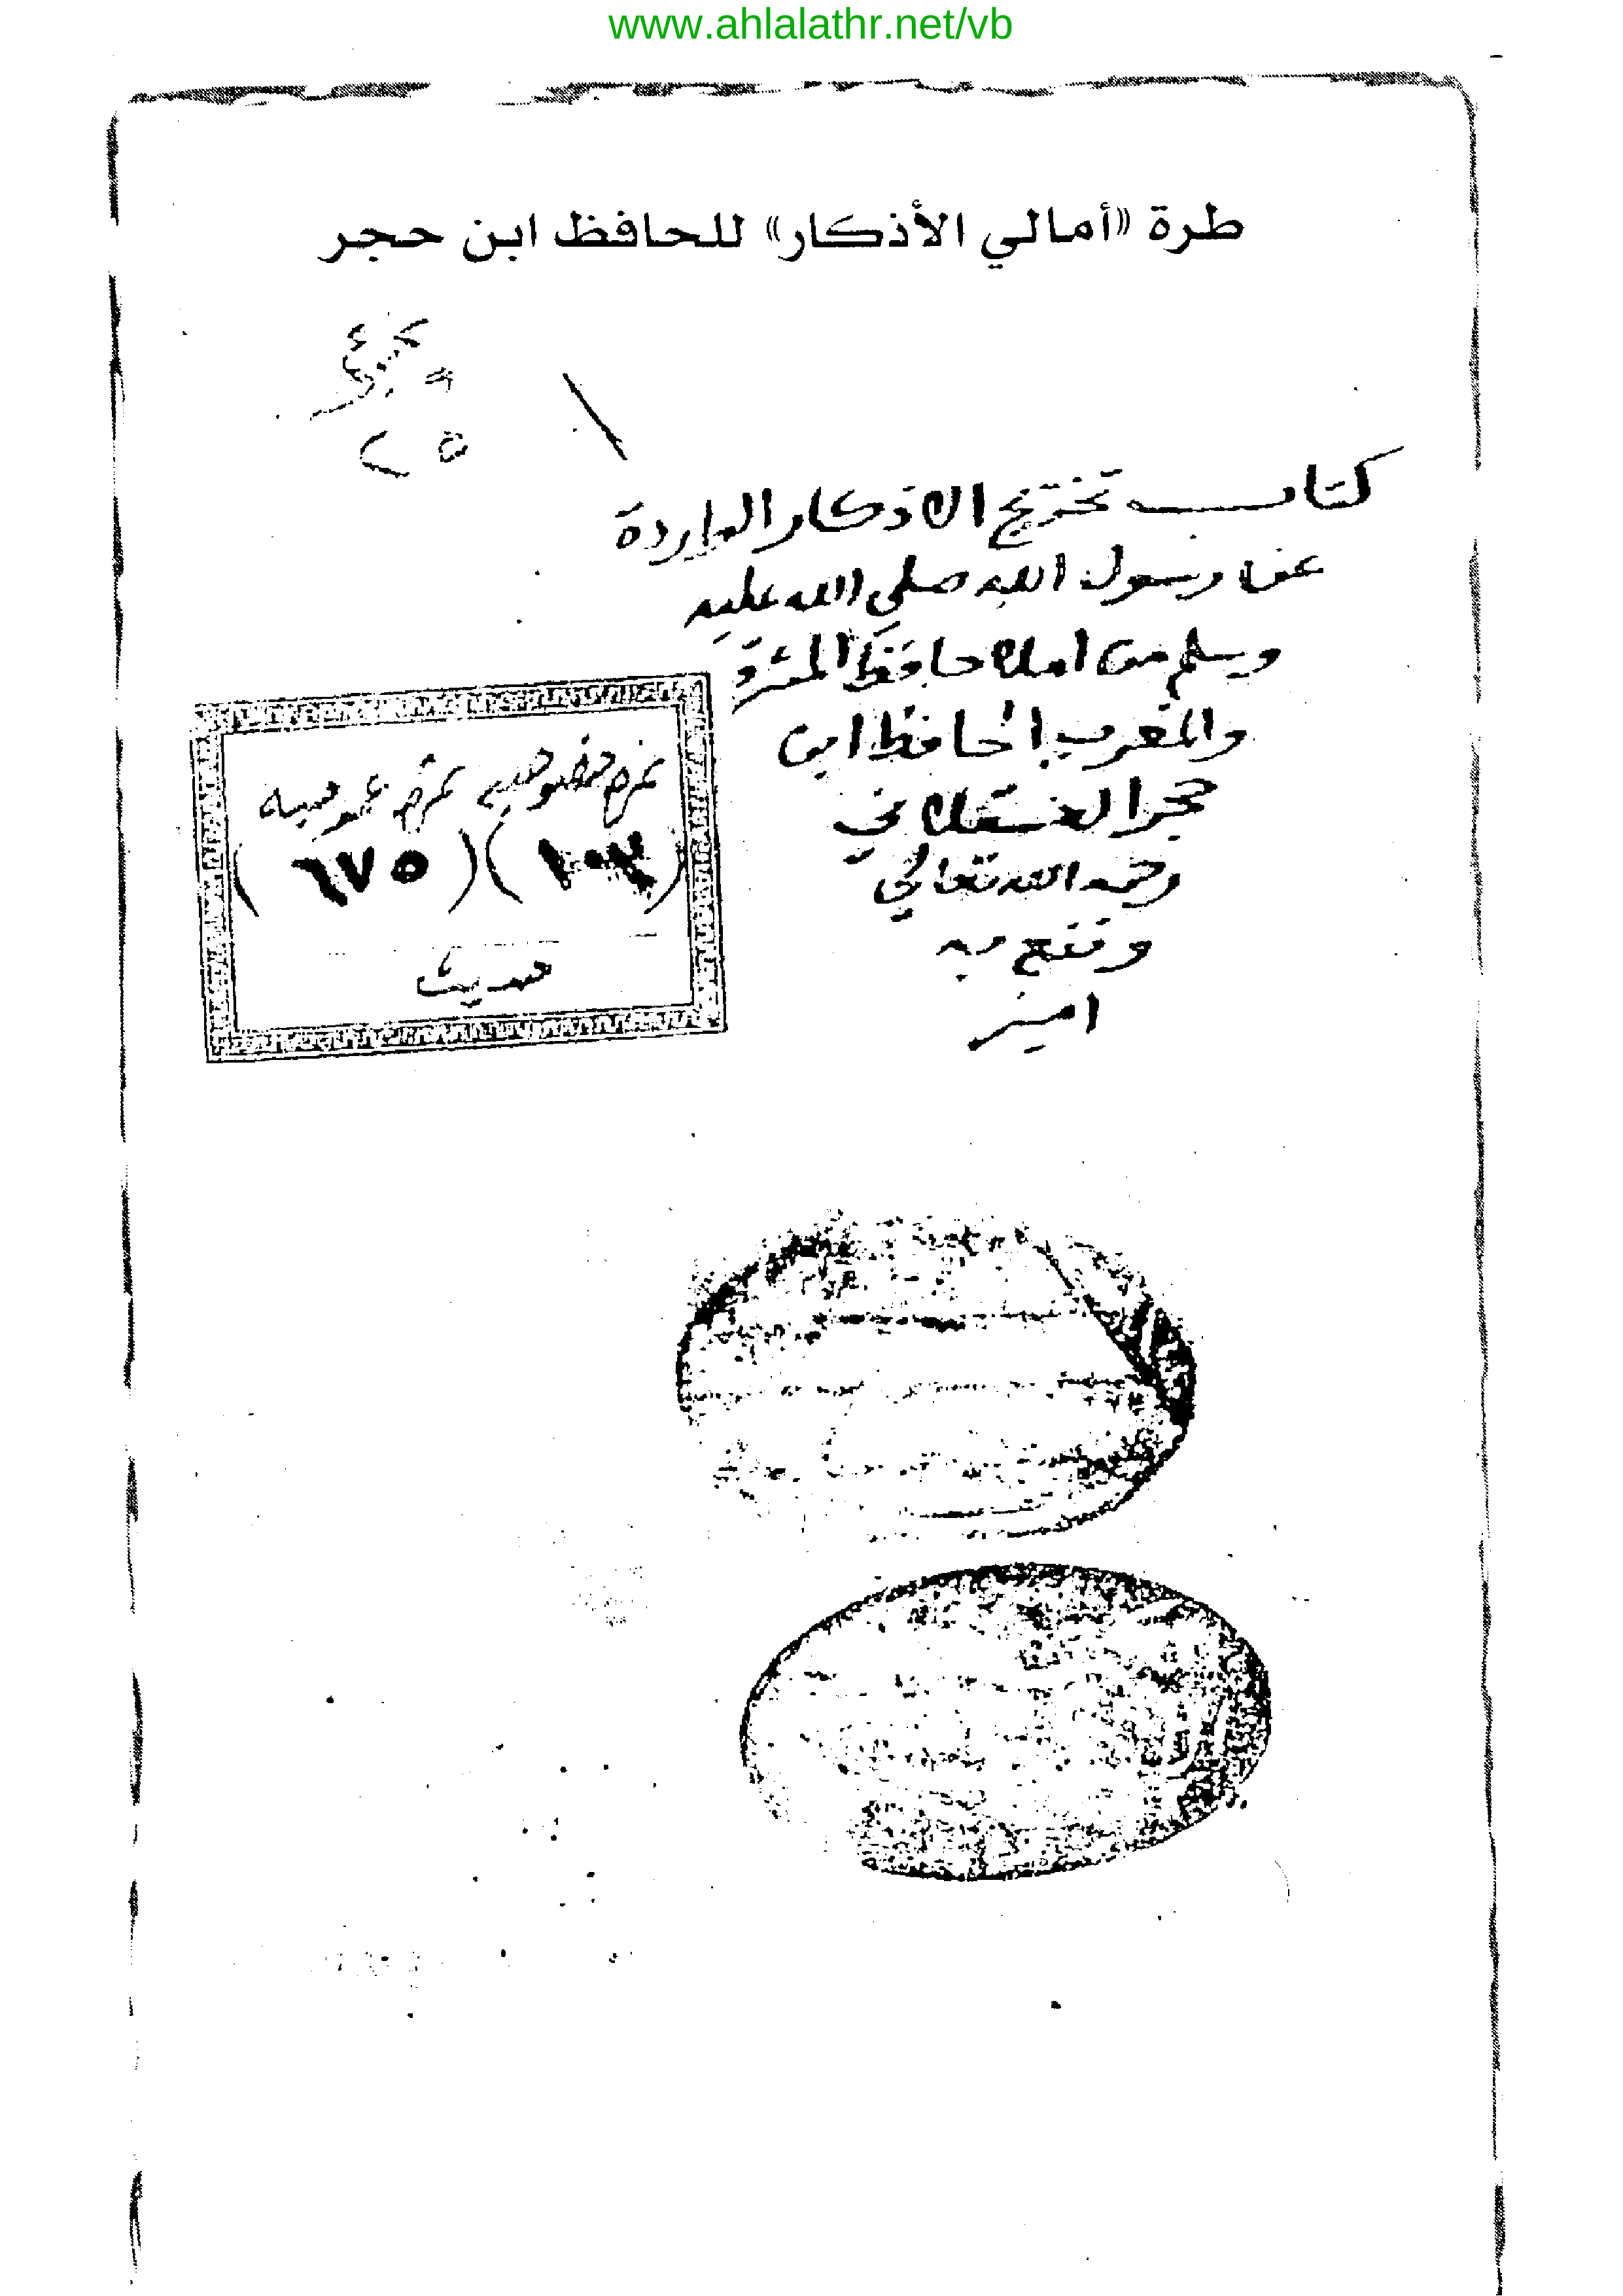 www.ahlalathr.net/vb
طرة «أمالي الأذكار» للحافظ ابن حجر
كتاب تخريج الاذكار الواردة
عن رسول الله صلى الله عليه
وسلم من املا حافظ المشرق
والمغرب الحافظ ابن
حجر العسقلاني
رحمه الله تعالى
ونفع به
امين
نمره خصوصيه نمره عموميه
(١٠٣) (٦٧٥)
حديث